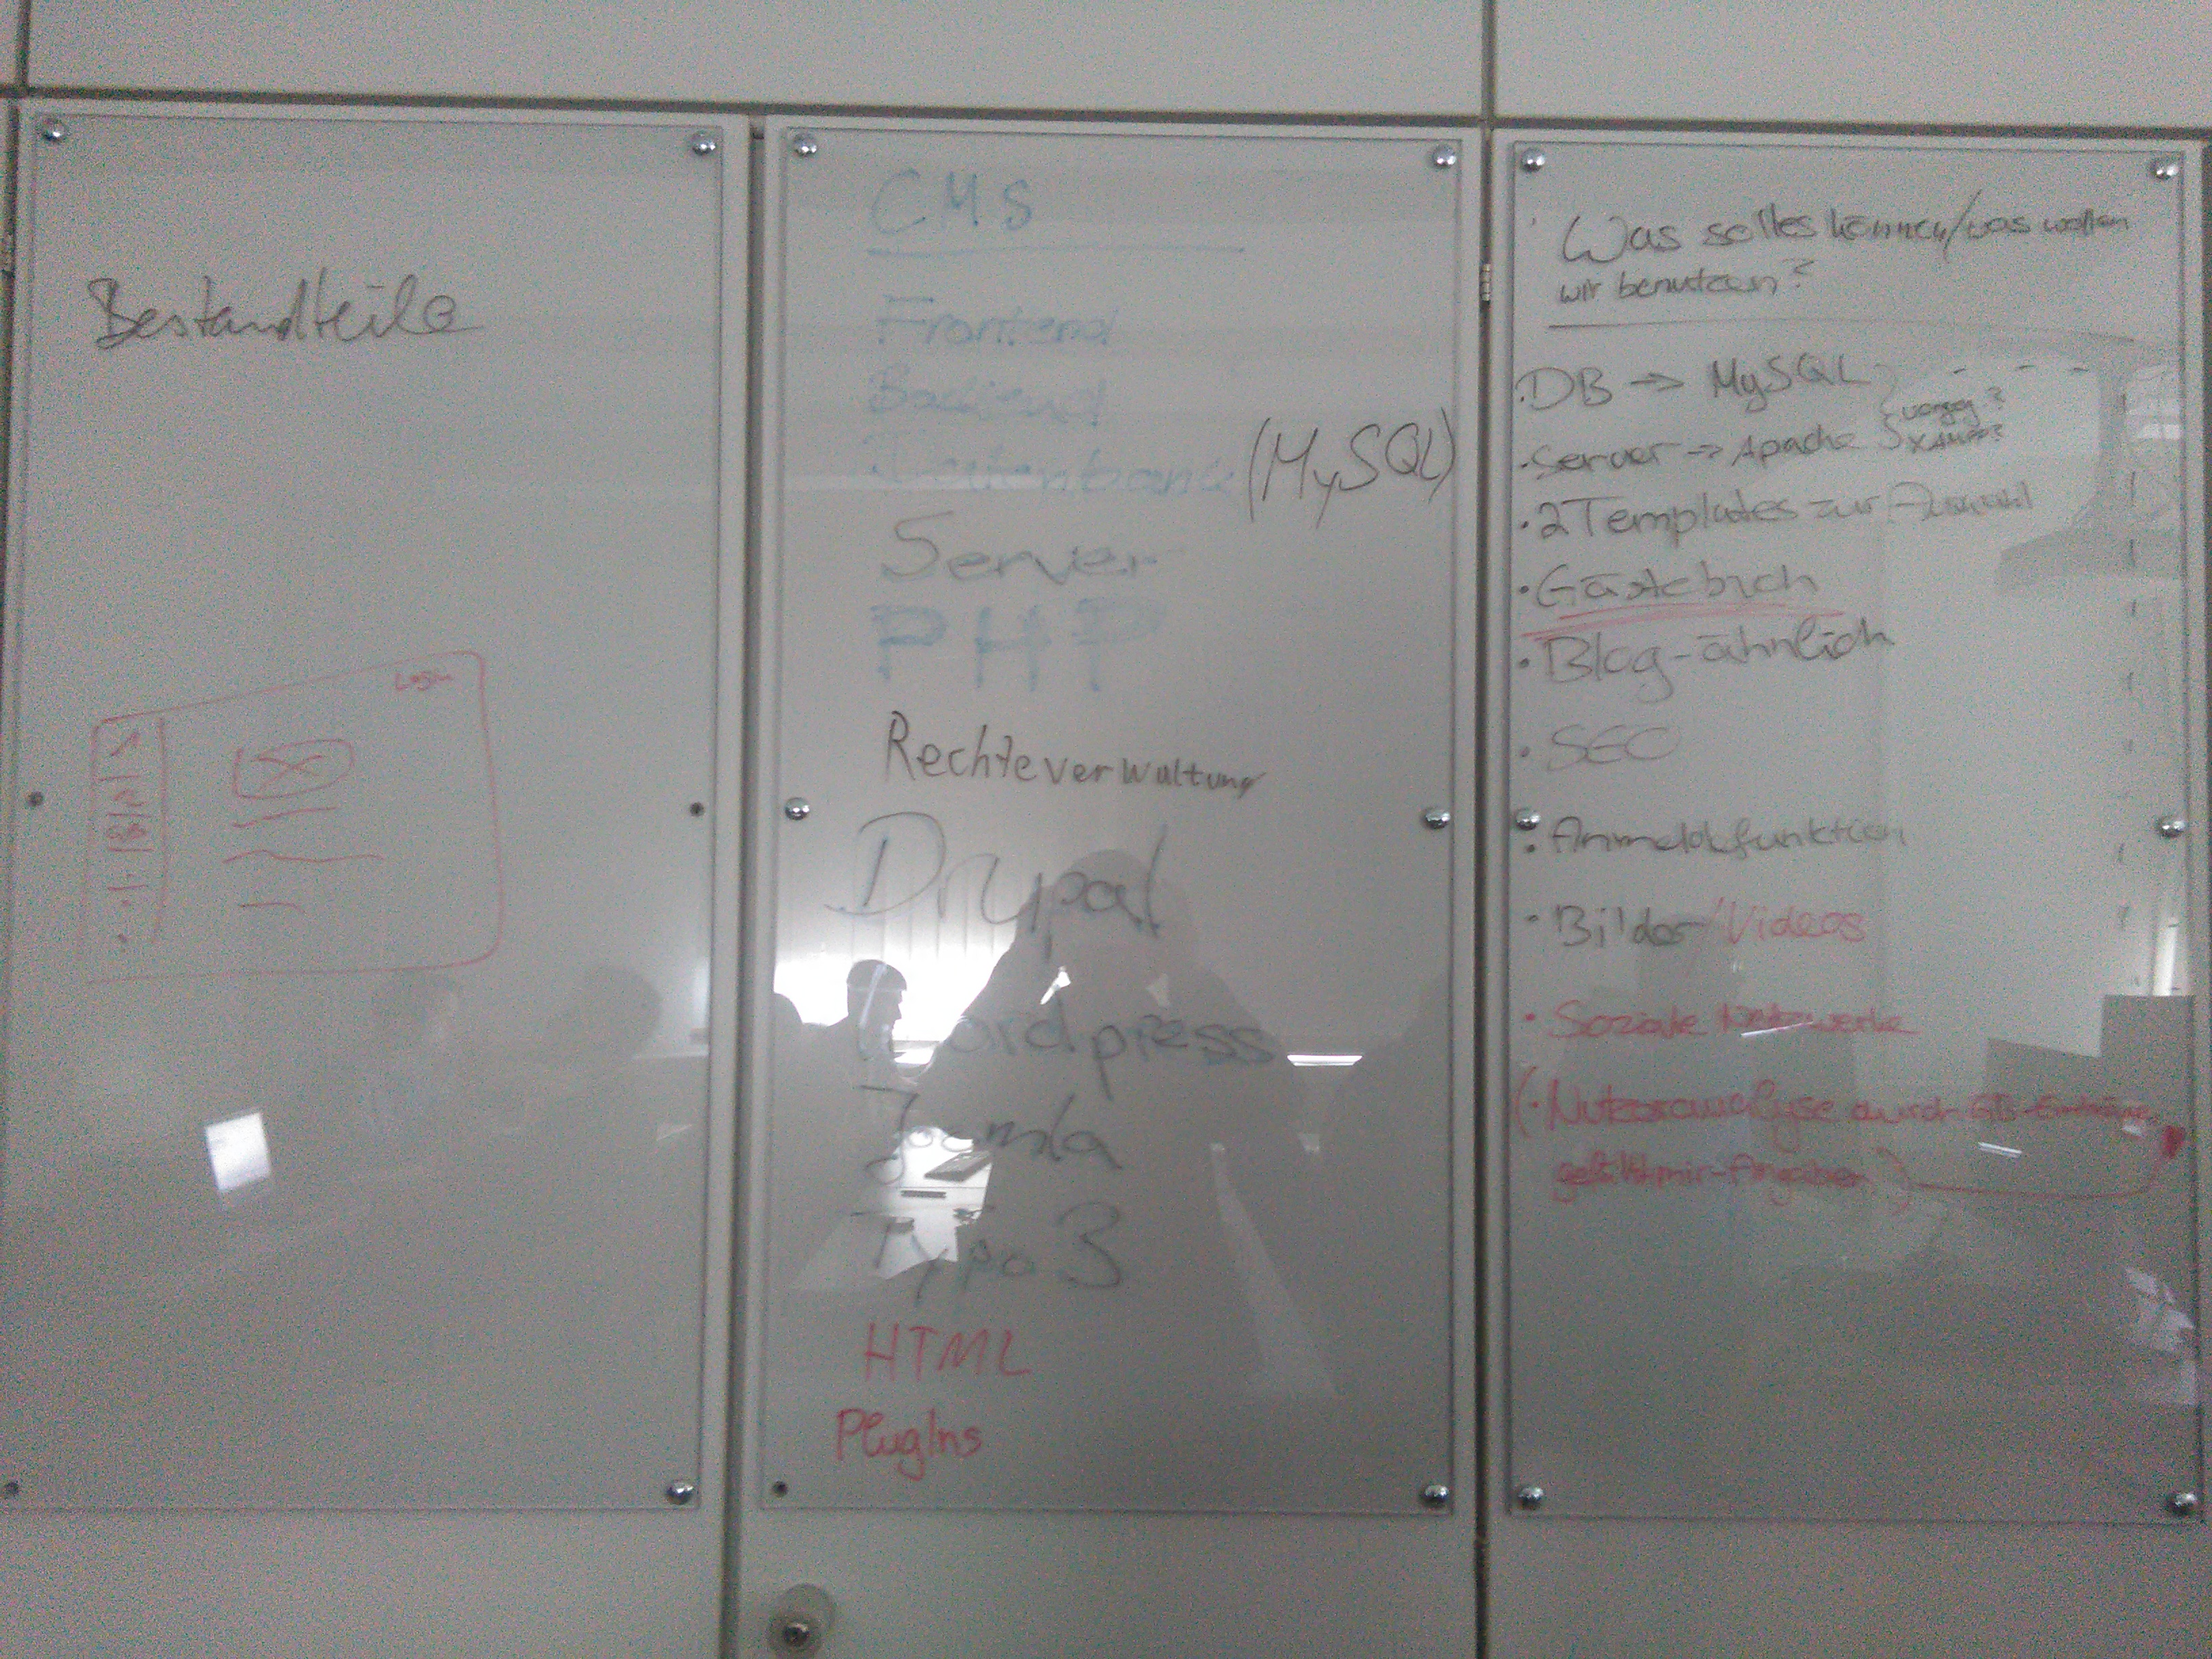 Bestandteile
Login
CMS
Frontend
Backend
Datenbank (MySQL)
Server
PHP
Rechteverwaltung
Drupal
Wordpress
Joomla
Typo 3
HTML
PlugIns
Was soll es können/was wollen
wir benutzen?
DB → MySQL
• Server → Apache
XAMPP?
• 2 Templates zur Auswahl
• Gästebuch
• Blog-ähnlich
• SEO
• Anmeldefunktion
• Bilder/Videos
• Soziale Netzwerke
(• Nutzeranalyse durch GB-Einträge
gefällt mir-Angaben)